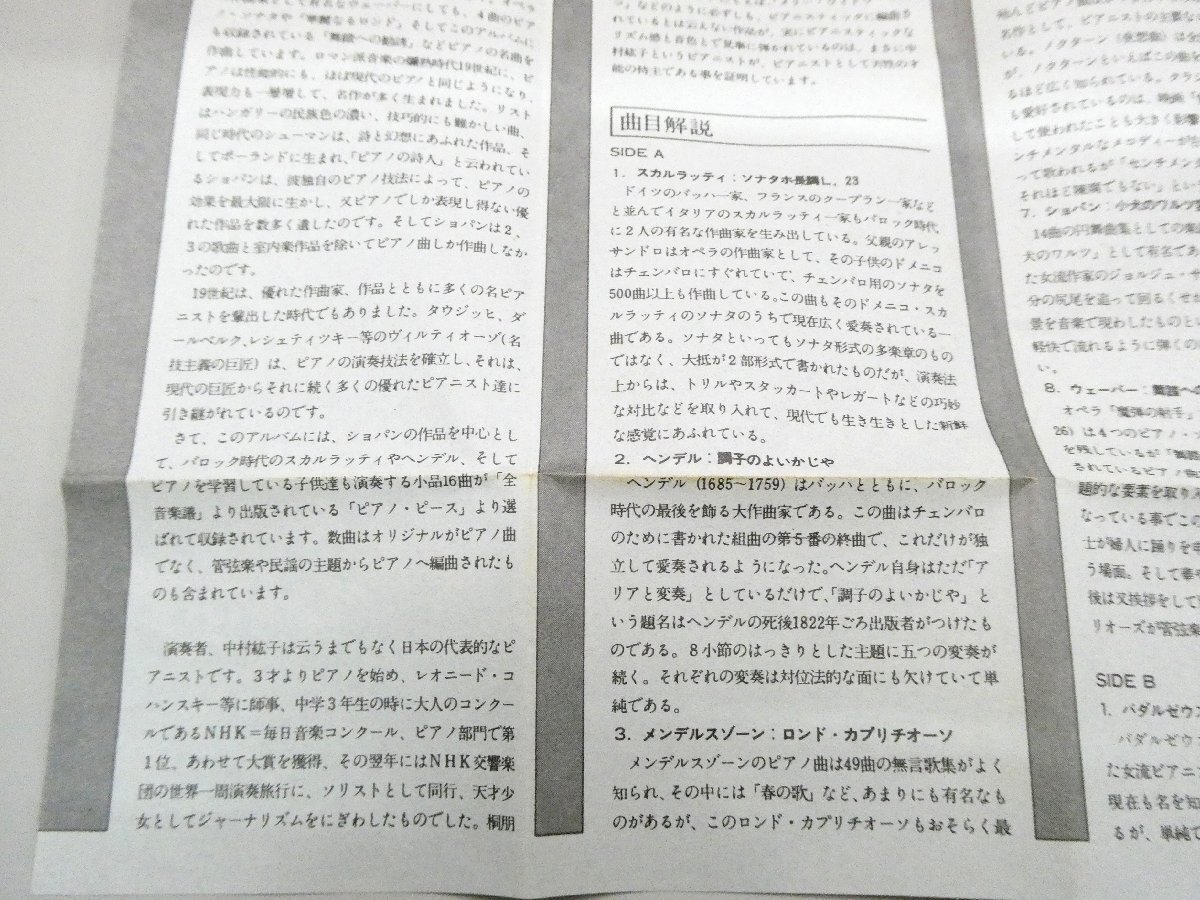 も収録されている「舞踏への勧誘」などピアノの名曲を
作曲しています。ロマン派音楽の爛熟時代19世紀に、ピ
アノは性能的にも、ほぼ現代のピアノと同じようになり、
表現力も一層増して、名作が多く生まれました。リスト
はハンガリーの民族色の濃い、技巧的にも難かしい曲、
同じ時代のシューマンは、詩と幻想にあふれた作品、そ
してポーランドに生まれ、「ピアノの詩人」と云われてい
るショパンは、彼独自のピアノ技法によって、ピアノの
効果を最大限に生かし、又ピアノでしか表現し得ない優
れた作品を数多く遺したのです。そしてショパンは2、
3の歌曲と室内楽作品を除いてピアノ曲しか作曲しなか
ったのです。
19世紀は、優れた作曲家、作品とともに多くの名ピア
ニストを輩出した時代でもありました。タウジッヒ、ダ
ールベルク、レシェティツキー等のヴィルティオーゾ(名
技主義の巨匠)は、ピアノの演奏技法を確立し、それは、
現代の巨匠からそれに続く多くの優れたピアニスト達に
引き継がれているのです。
さて、このアルバムには、ショパンの作品を中心とし
て、バロック時代のスカルラッティやヘンデル、そして
ピアノを学習している子供達も演奏する小品16曲が「全
音楽譜」より出版されている「ピアノ・ピース」より選
ばれて収録されています。数曲はオリジナルがピアノ曲
でなく、管弦楽や民謡の主題からピアノへ編曲されたも
のも含まれています。
演奏者、中村紘子は云うまでもなく日本の代表的なピ
アニストです。3才よりピアノを始め、レオニード・コ
ハンスキー等に師事、中学3年生の時に大人のコンクー
ルであるNHK=毎日音楽コンクール、ピアノ部門で第
1位、あわせて大賞を獲得、その翌年にはNHK交響楽
団の世界一周演奏旅行に、ソリストとして同行、天才少
女としてジャーナリズムをにぎわしたものでした。桐朋
れているとは云えない作品が、実にピアニスティックな
リズム感と音色とで見事に弾かれているのは、まさに中
村紘子というピアニストが、ピアニストとして天性の才
能の持主である事を証明しています。
曲目解説
SIDE A
1. スカルラッティ:ソナタホ長調L. 23
ドイツのバッハ一家、フランスのクープラン一家など
と並んでイタリアのスカルラッティ一家もバロック時代
に2人の有名な作曲家を生み出している。父親のアレッ
サンドロはオペラの作曲家として、その子供のドメニコ
はチェンバロにすぐれていて、チェンバロ用のソナタを
500曲以上も作曲している。この曲もそのドメニコ・スカ
ルラッティのソナタのうちで現在広く愛奏されている一
曲である。ソナタといってもソナタ形式の多楽章のもの
ではなく、大抵が2部形式で書かれたものだが、演奏法
上からは、トリルやスタッカートやレガートなどの巧妙
な対比などを取り入れて、現代でも生き生きとした新鮮
な感覚にあふれている。
2. ヘンデル:調子のよいかじや
ヘンデル(1685～1759)はバッハとともに、バロック
時代の最後を飾る大作曲家である。この曲はチェンバロ
のために書かれた組曲の第5番の終曲で、これだけが独
立して愛奏されるようになった。ヘンデル自身はただ「ア
リアと変奏」としているだけで、「調子のよいかじや」と
いう題名はヘンデルの死後1822年ごろ出版者がつけたも
のである。8小節のはっきりとした主題に五つの変奏が
続く。それぞれの変奏は対位法的な面にも欠けていて単
純である。
3. メンデルスゾーン:ロンド・カプリチオーソ
メンデルスゾーンのピアノ曲は49曲の無言歌集がよく
知られ、その中には「春の歌」など、あまりにも有名なも
のがあるが、このロンド・カプリチオーソもおそらく最
名作として、ピアニストの主要な
いる。ノクターン(夜想曲)は全
が、ノクターンといえばこの曲を
るほど広く知られている。クラシ
も愛好されているのは、映画「
して使われたことも大きく影響
ンチメンタルなメロディーが
って歌われるが「センチメン
それほど演奏でもない」とい
7. ショパン:小犬のワルツ
14曲の円舞曲集としての楽
犬のワルツ」として有名であ
た女流作家のジョルジュ・サ
分の尻尾を追って回るくせ
景を音楽で現わしたものと
軽快で流れるように弾くの
い。
8. ウェーバー:舞踏へ
オペラ「魔弾の射手」
26)は4つのピアノ・
を残しているが「舞踏
されているピアノ曲
題的な要素を取り入
なっている事でこの
士が婦人に踊りを申
う場面。そして華や
後は又挨拶をして
リオーズが管弦楽
SIDE B
1. バダルゼウス
バダルゼウ
た女流ピアニ
現在も名を知
るが、単純で